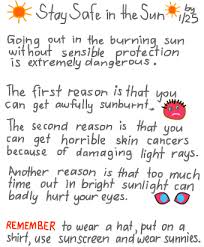 Stay Safe in the Sun by 1/25
Going out in the burning sun
without sensible protection
is extremely dangerous.
The first reason is that you
can get awfully sunburnt.
The second reason is that you
can get horrible skin cancers
because of damaging light rays.
Another reason is that too much
time out in bright sunlight can
badly hurt your eyes.
REMEMBER to wear a hat, put on a
shirt, use sunscreen and wear sunnies.